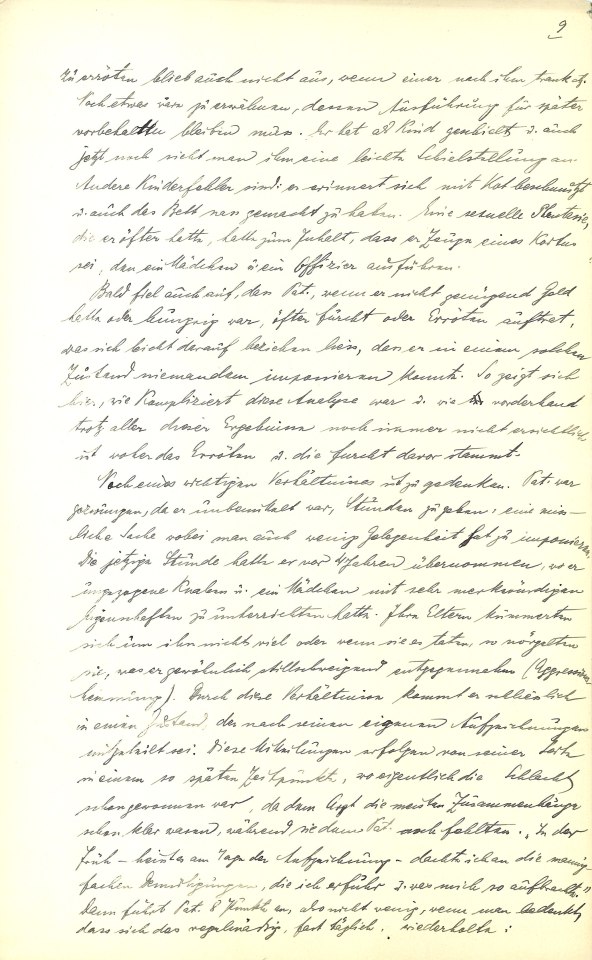 9
zu erröten blieb auch nicht aus, wenn einer nach ihm trank etz.
Noch etwas wäre zu erwähnen, dessen Ausführung für später
vorbehalten bleiben muss. Er hat als Kind geschielt u. auch
jetzt noch sieht man ihm eine leichte Schielstellung an.
Andere Kinderfehler sind: er erinnert sich mit Kot beschmutzt
u. auch das Bett nass gemacht zu haben. Eine sexuelle Phantasie,
die er öfter hatte, hatte zum Inhalt, dass er Zeuge eines Koitus
sei, den ein Mädchen u ein Offizier ausführen.
Bald fiel auch auf, dass Pat., wenn er nicht genügend Geld
hatte oder hungrig war, öfter Furcht oder Erröten auftrat,
was sich leicht darauf beziehen liess, dass er in einem solchen
Zustand niemandem imponieren konnte. So zeigt sich
hier, wie kompliziert diese Analyse war u. wie vorderhand
trotz aller dieser Ergebnisse noch immer nicht ersichtlich
ist woher das Erröten u. die Furcht davor stammt.
Noch eines wichtigen Verhältnisses ist zu gedenken. Pat. war
gezwungen, da er unbemittelt war, Stunden zu geben; eine
liche Sache wobei man auch wenig Gelegenheit hat zu imponieren.
Die jetzige Stunde hatte er vor 4 Jahren übernommen, wo er
ungezogene Knaben u. ein Mädchen mit sehr merkwürdigen
Eigenschaften zu unterrichten hatte. Ihre Eltern kümmerten
sich um ihn nicht viel oder wenn sie es taten, so nörgelten
sie, was er gewöhnlich stillschweigend entgegennahm (Aggressions-
hemmung). Durch diese Verhältnisse kommt er schliesslich
in einen Zustand, der nach seinen eigenen Aufzeichnungen
mitgeteilt sei. Diese Mitteilungen erfolgen von seiner Seite
in einem so späten Zeitpunkte, wo eigentlich die Schlacht
schon gewonnen war, da dem Arzt die meisten Zusammenhänge
schon klar waren, während sie dem Pat. noch fehlten. „In der
Früh – heisst es am Tage der Aufzeichnung – dachte ich an die mannig-
fachen Demütigungen, die ich erfuhr u. was mich so aufbrachte."
Dann führt Pat. 8 Punkte an, also nicht wenig, wenn man bedenkt,
dass sich das regelmässig, fast täglich, wiederholte: